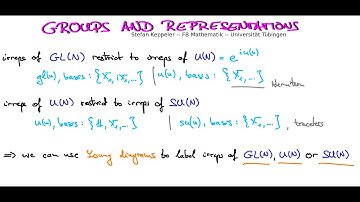 GROUPS AND REPRESENTATIONS
Stefan Keppeler -- FB Mathematik -- Universität Tübingen
irreps of GL(N) restrict to irreps of U(N) = e^{iu(N)}
gl(N), bases: {X₁, iX₁, ...} | u(N), bases: {X₁, ...}
Hermitian
irreps of U(N) restrict to irreps of SU(N)
u(N), bases: {1, X₁, ...} | su(N), bases: {X₁, ...}, traceless
⇒ we can use Young diagrams to label irreps of GL(N), U(N) or SU(N)